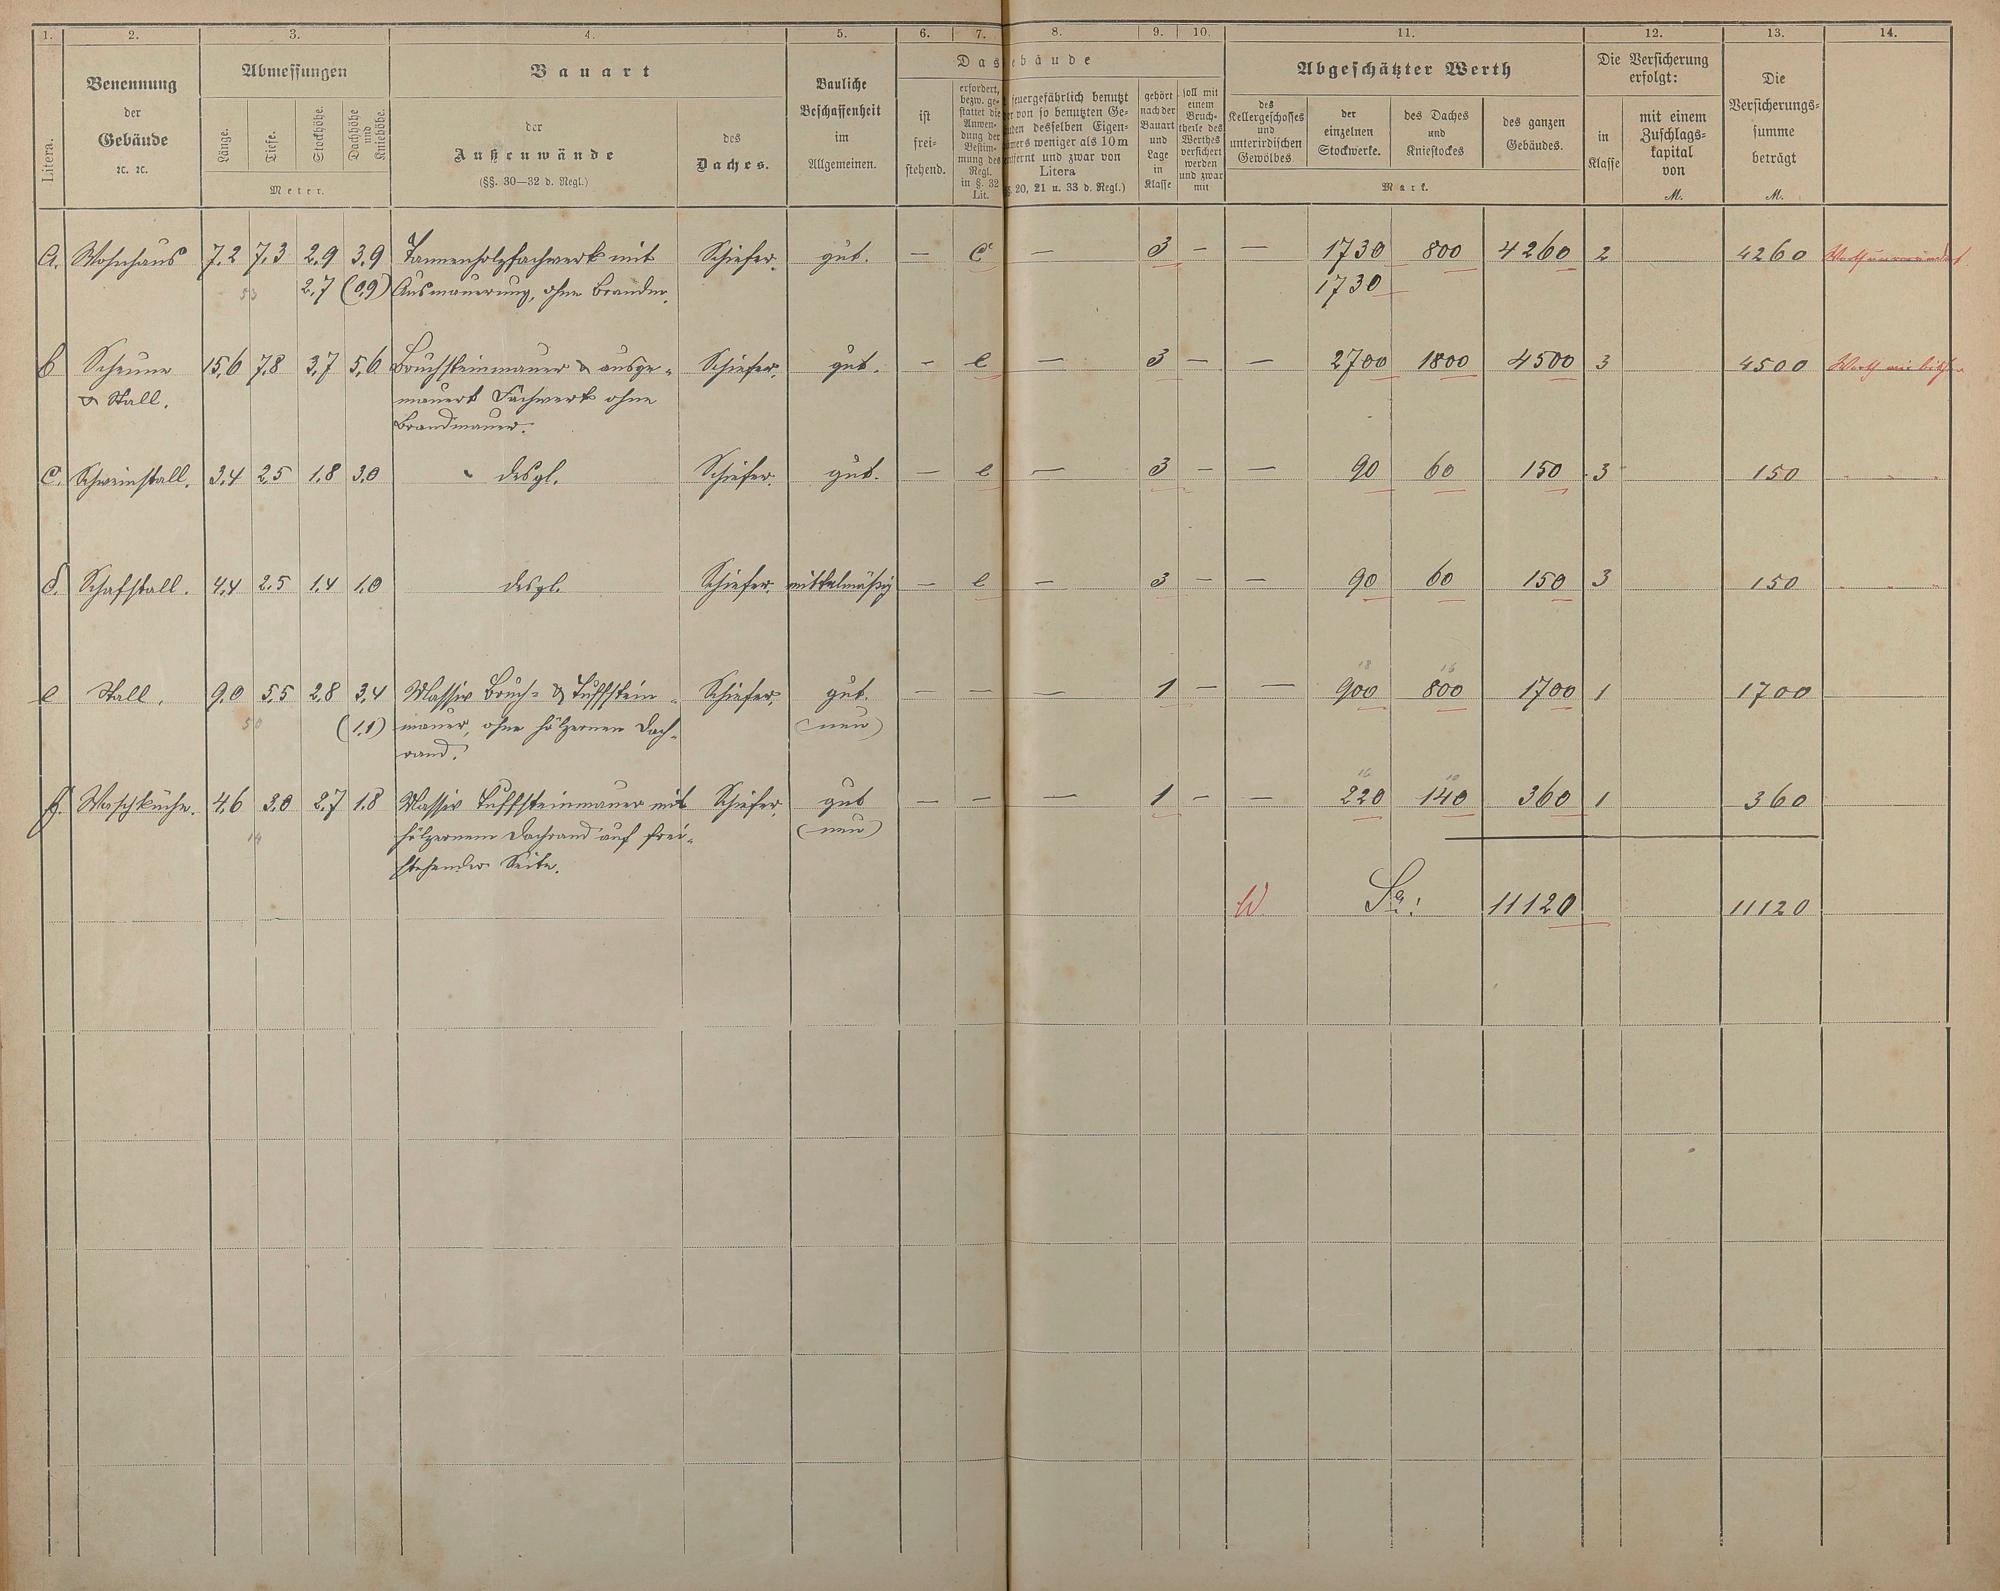 1. 2. 3. 4. 5. 6. 7. 8. 9. 10. 11. 12. 13. 14.
Litera.
Benennung
der
Gebäude
ꝛc. ꝛc.
Abmessungen
Länge.
Tiefe.
Stockhöhe.
Dachhöhe
und
Kniehöhe.
Meter.
Bauart
der
Außenwände
(§§. 30—32 d. Regl.)
des
Daches.
Bauliche
Beschaffenheit
im
Allgemeinen.
Das
ebäude
ist
frei-
stehend.
erfordert,
bezw. ge-
stattet die
Anwen-
dung der
Bestim-
mung des
Regl.
in §. 32
Lit.
feuergefährlich benutzt
von so benutzten Ge-
desselben Eigen-
weniger als 10 m
und zwar von
Litera
20, 21 u. 33 d. Regl.)
gehört
nach der
Bauart
und
Lage
in
Klasse
soll mit
einem
Bruch-
theile des
Werthes
versichert
werden
und zwar
mit
Abgeschätzter Werth
des
Kellergeschosses
und
unterirdischen
Gewölbes
der
einzelnen
Stockwerke.
des Daches
und
Kniestockes
des ganzen
Gebäudes.
Mark.
Die Versicherung
erfolgt:
in
Klasse
mit einem
Zuschlags-
kapital
von
M.
Die
Versicherungs-
summe
beträgt
M.
a. Wohnhaus 7.2 7.3 2.9 3.9 Tannenholzfachwerk mit Schiefer. gut. — c — 3 — — 1730 800 4260 2 4260
53 2.7 (0.9) Ausmauerung, ohne Brandm. 1730
b Scheune 15,6 7,8 3,7 5,6 Bruchsteinmauer & ausge- Schiefer. gut. — e — 3 — — 2700 1800 4500 3 4500 Werth wie bisher
& Stall. mauert Fachwerk ohne
Brandmauer.
c. Schweinstall. 3,4 2.5 1.8 3.0 desgl. Schiefer. gut. — e — 3 — — 90 60 150 3 150
d. Schafstall. 4,4 2.5 1.4 1.0 desgl. Schiefer. mittelmäßig — e — 3 — — 90 60 150 3 150
18 16
e Stall. 9,0 5.5 2.8 3,4 Massiv Bruch- & Tuffstein- Schiefer. gut. — — — 1 — — 900 800 1700 1 1700
50 (1,1) mauer, ohne hölzernen Dach- (neu)
rand.
16 10
f. Waschküche. 4,6 3.0 2.7 1.8 Massiv Tuffsteinmauer mit Schiefer. gut — — — 1 — — 220 140 360 1 360
14 hölzernem Dachrand auf frei- (neu)
stehender Seite.
Sa: 11120 11120